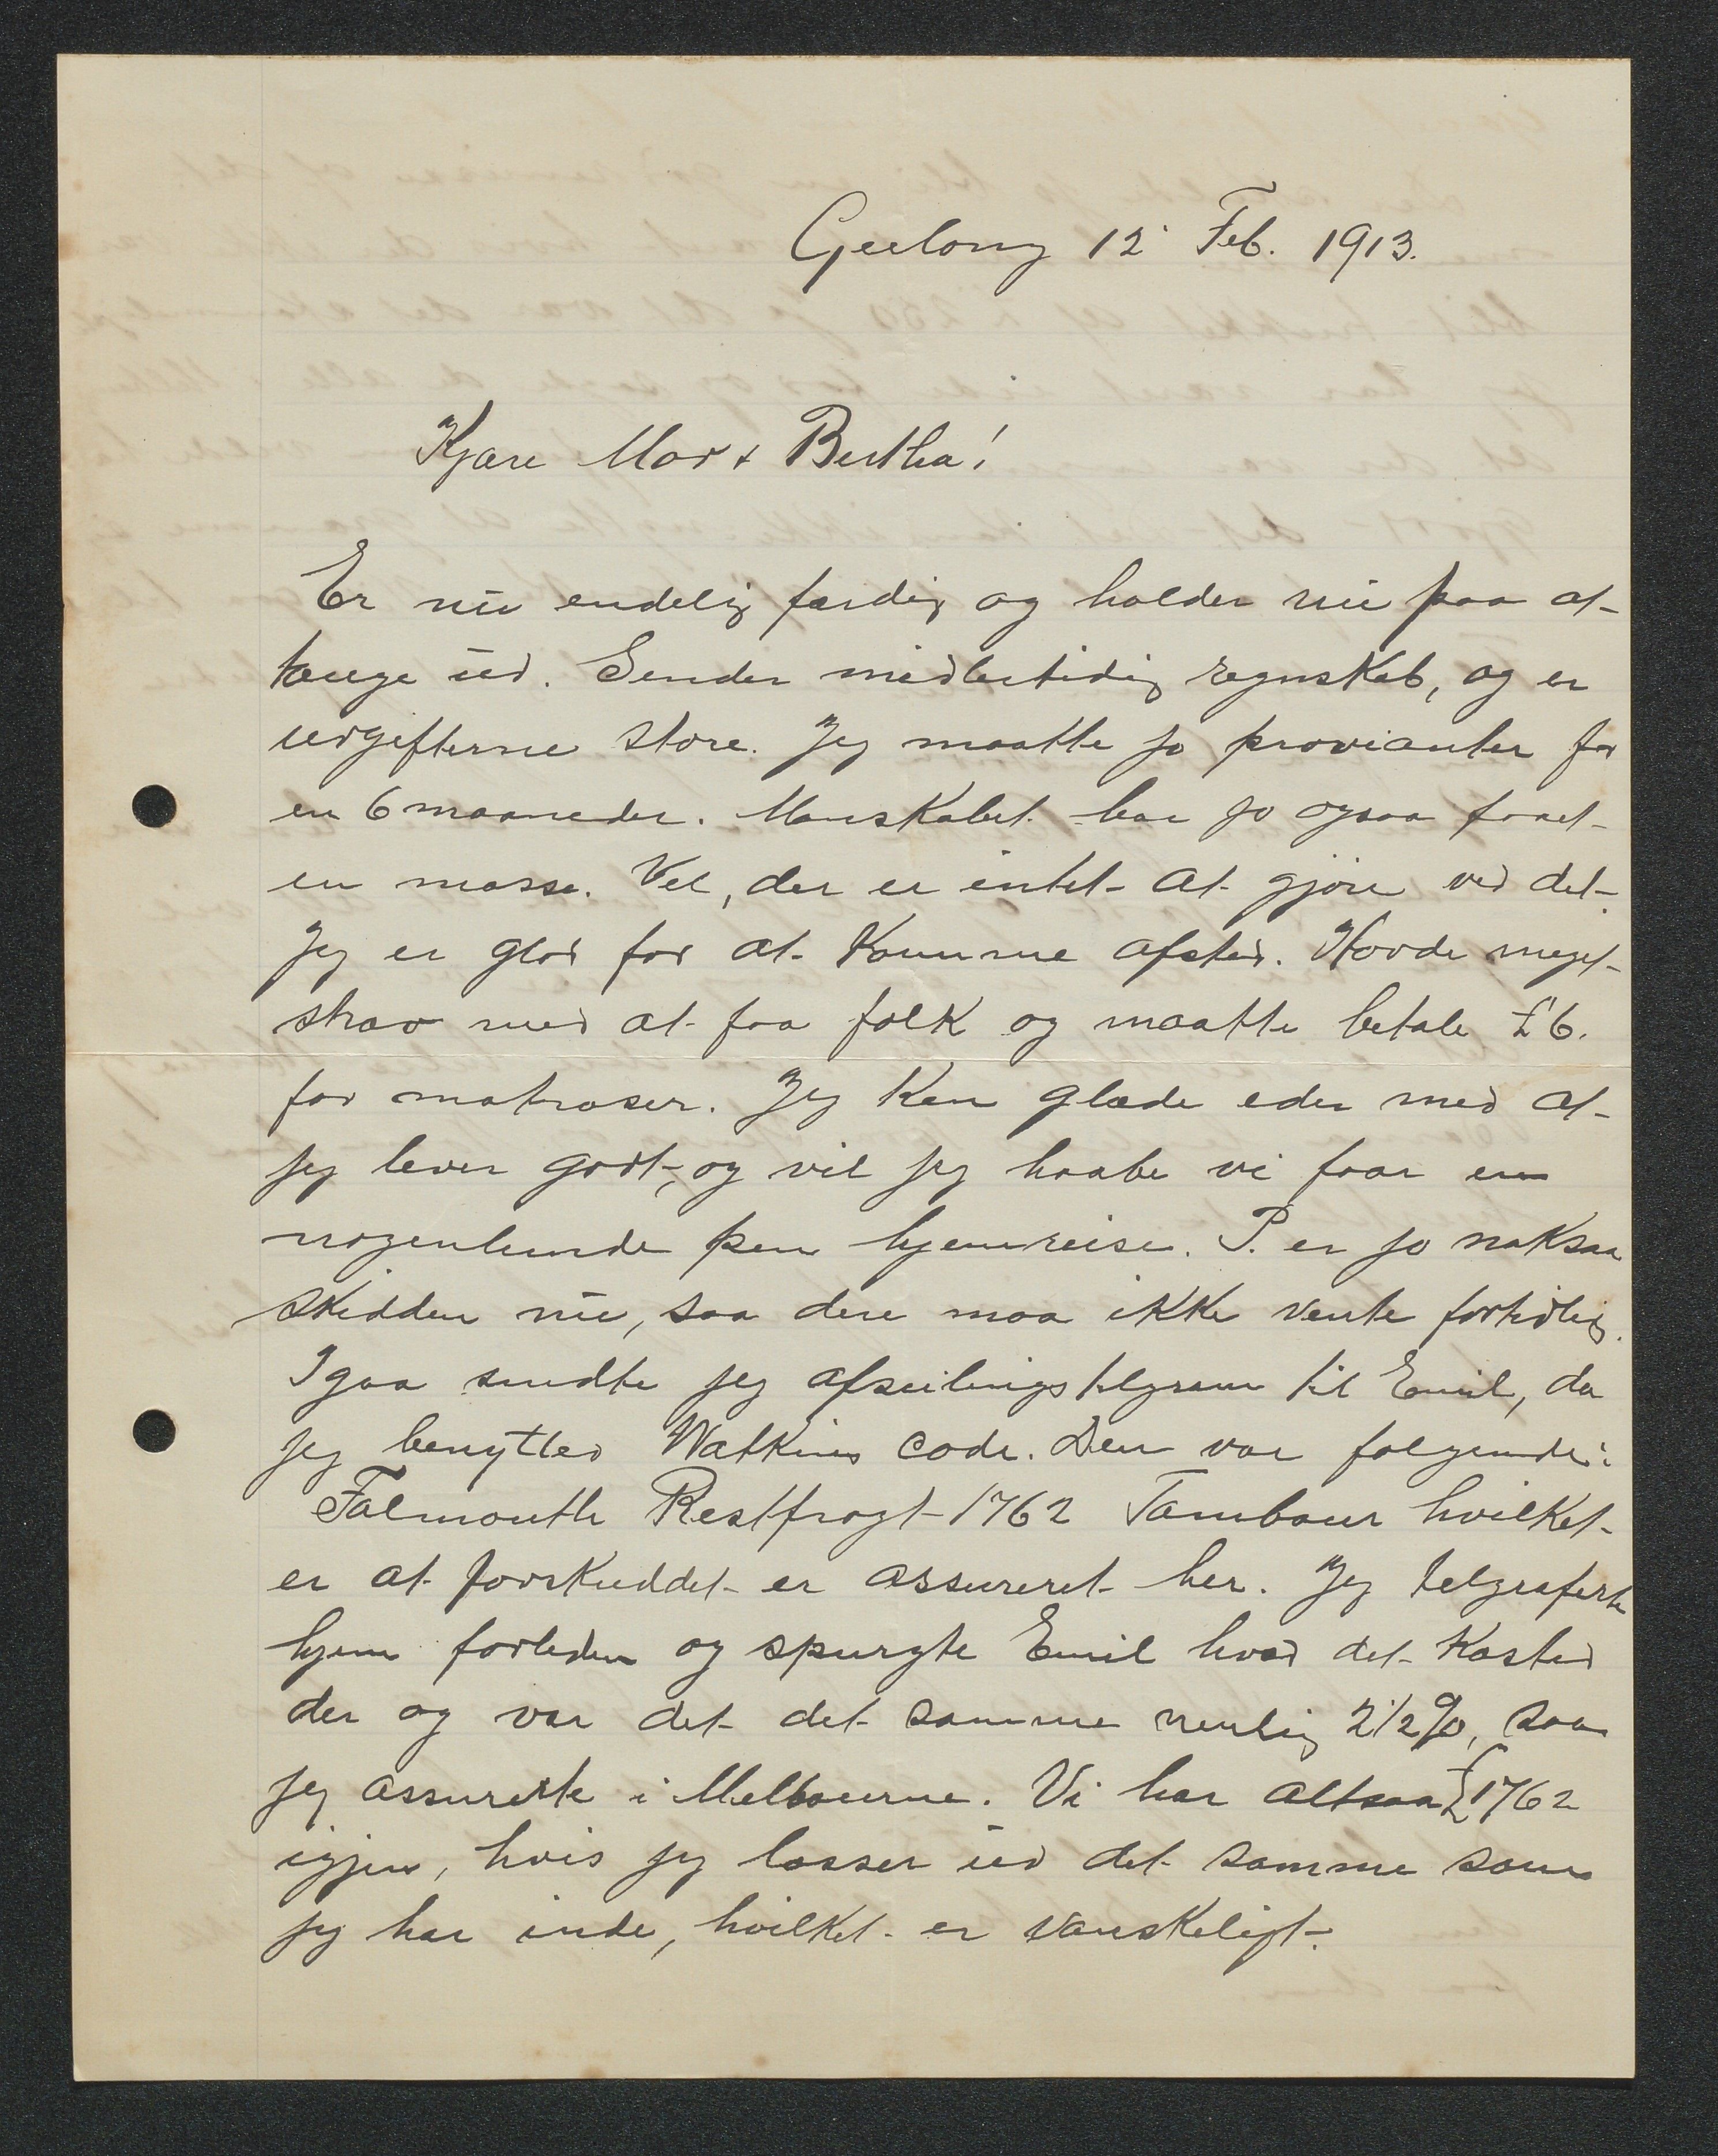 Geelong 12 Feb. 1913.
Kjære Mor & Bertha!
Er nu endelig færdig og holder nu paa at
tauge ud. Sender midlertidig regnskab, og er
udgifterne store. Jeg maatte jo provianter for
en 6 maaneder. Manskabet har jo ogsaa faaet
en masse. Vel, der er intet at gjøre ved det.
Jeg er glad for at komme afsted. Havde meget
strav med at faa folk og maatte betale £6.
for matroser. Jeg kan glæde eder med at
jeg lever godt, og vil jeg haabe vi faar en
nogenlunde pen hjemreise. P. er jo noksaa
skidden nu, saa dere maa ikke vente fortidlig.
Igaa sendte jeg afseilingstelgram til Emil, da
jeg benytted Watkins code. Den var følgende:
Falmouth Restfragt 1762 Tambour hvilket
er at forskuddet er assureret her. Jeg telgraferte
hjem forleden og spurgte Emil hvad det kosted
der og var det det samme nemlig 2 1/2 %, saa
jeg assurerte i Melbourne. Vi har altsaa £1762
igjen, hvis jeg losser ud det samme som
jeg har inde, hvilket er vanskeligt.